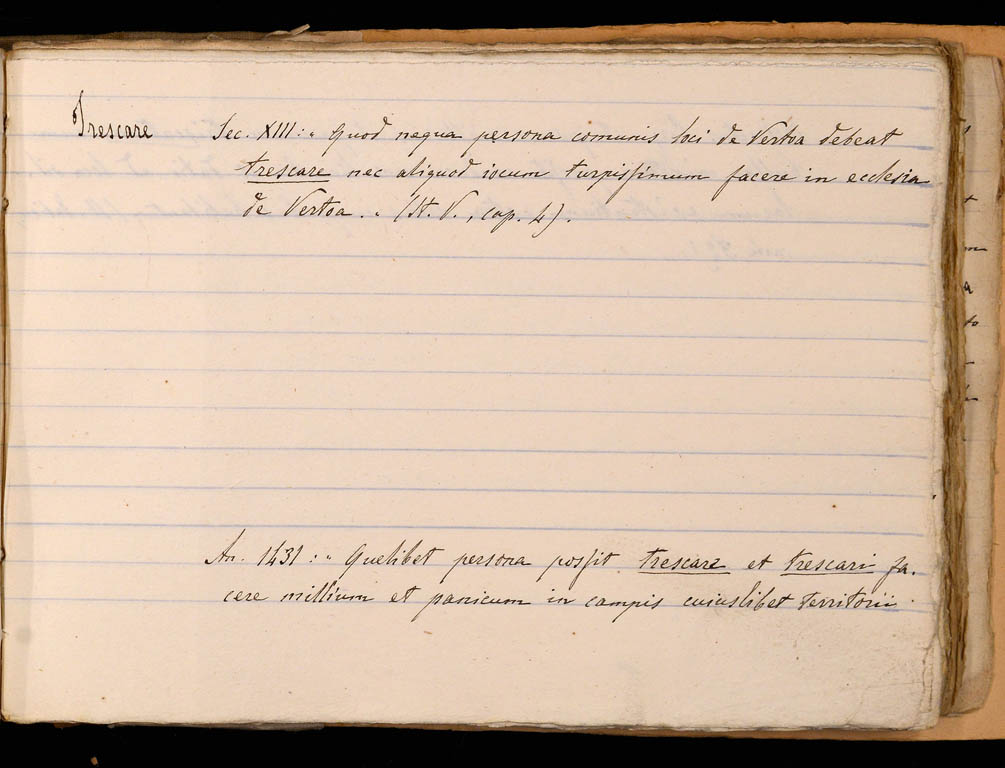 Trescare Sec. XIII: „ Quod nequa persona comunis loci de Vertoa debeat
trescare nec aliquod iocum turpissimum facere in ecclesia
de Vertoa. „ (St. V., cap. 4).
An. 1431: „ Quelibet persona possit trescare et trescari fa-
cere millium et panicum in campis cuiuslibet territorii